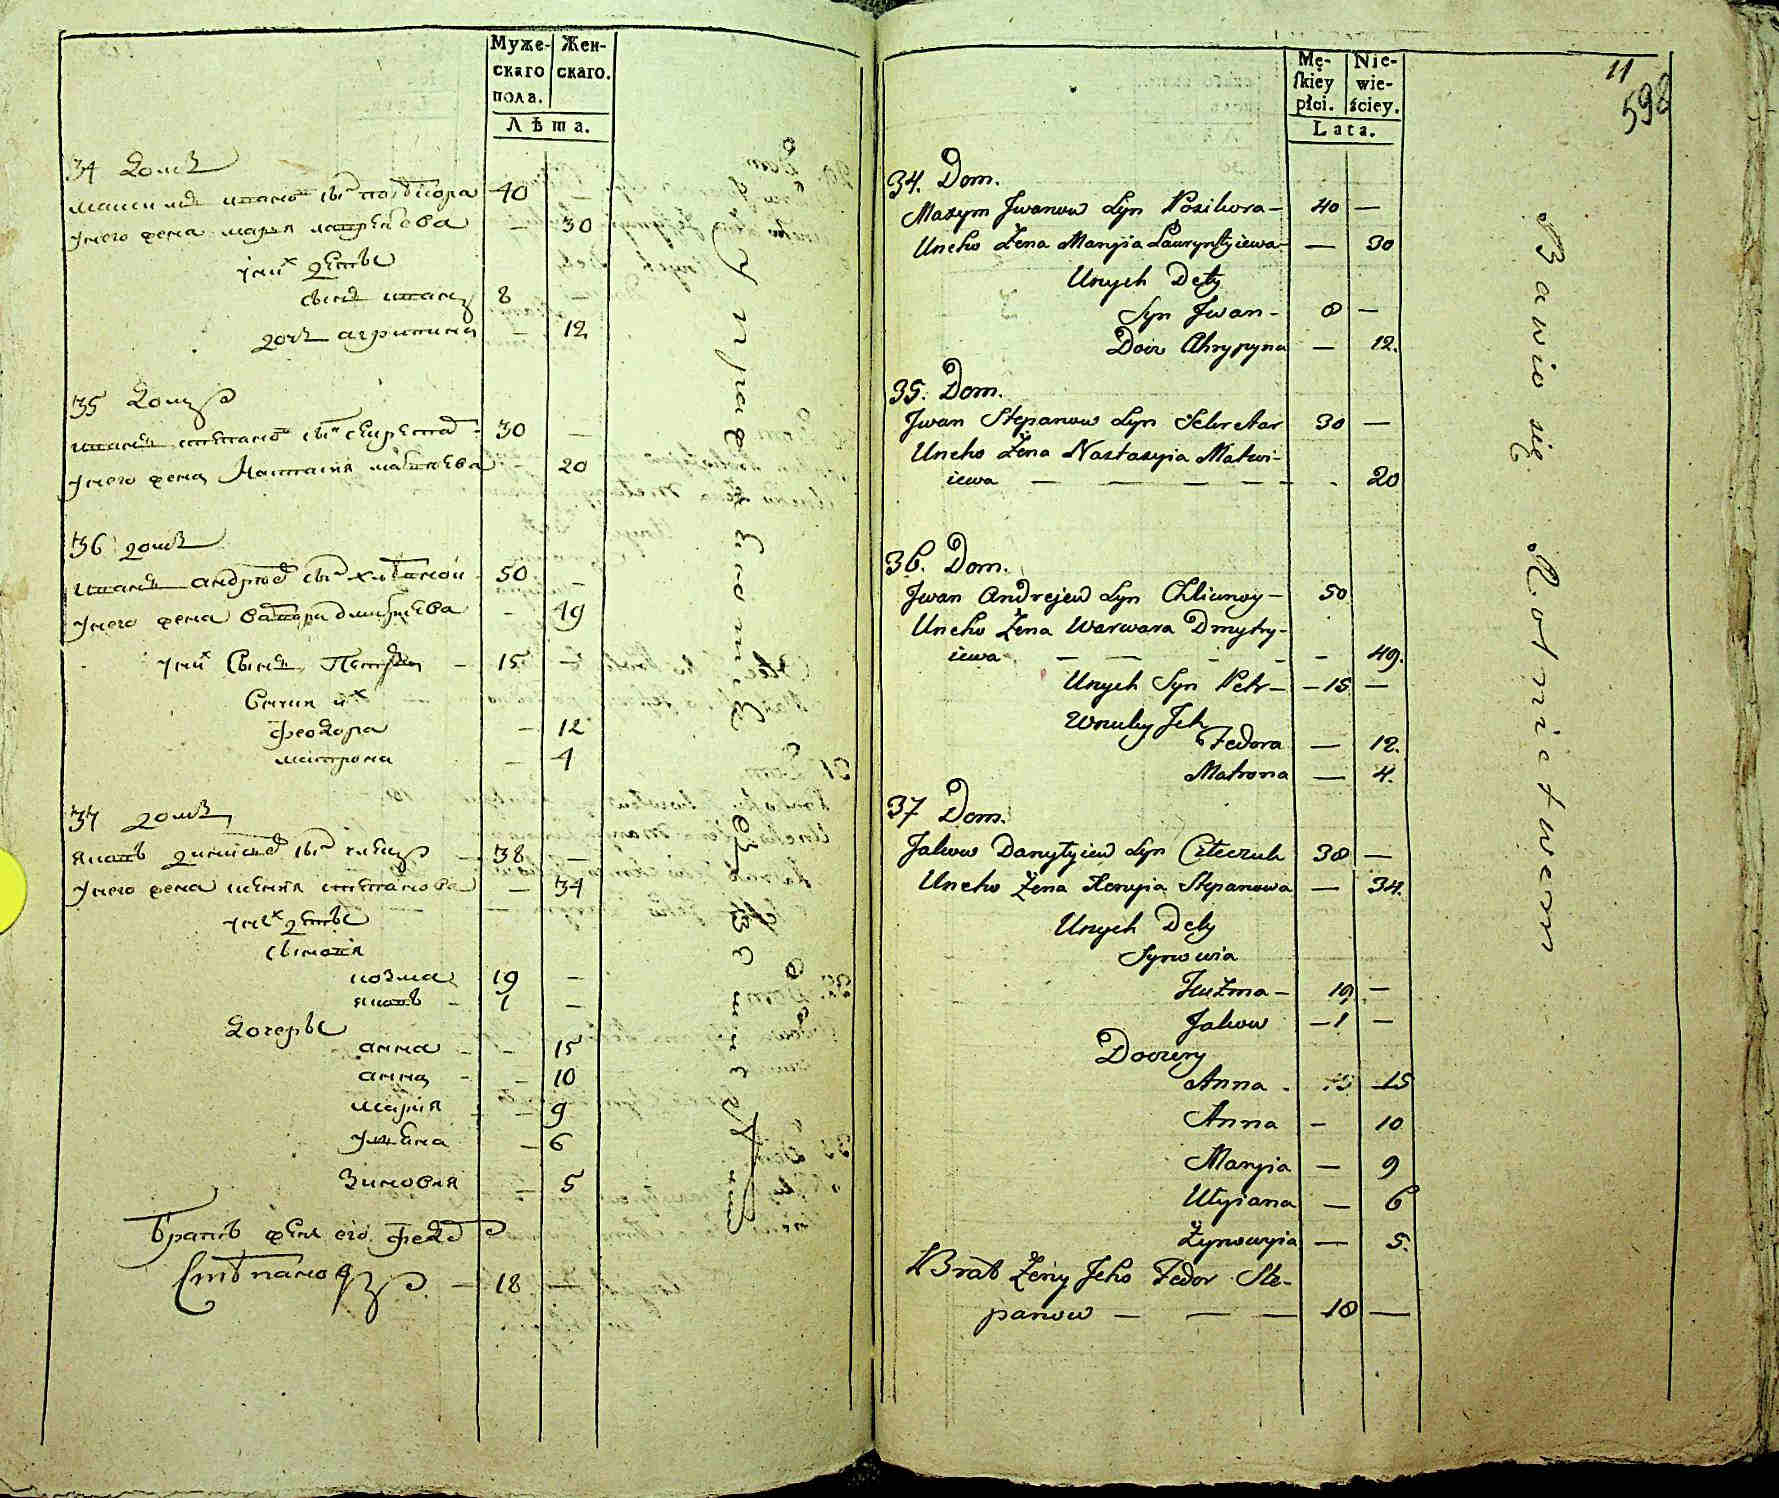 Муже-
скаго
пола.
Жен-
скаго.
Лѣта.
34 домъ
максимъ ивановъ сынъ
40 —
унего жена марья
— 30
уних дети
сынъ иванъ 8
дочь агрипина — 12
35 домъ
иванъ степановъ сынъ 30 —
унего жена Настасия матвеева 20
36 домъ
иванъ андреевъ сынъ 50 —
унего жена варвара дмитреева — 49
уних Сынъ Петръ — 15 —
внуки их
феодора — 12
матрона — 4
37 домъ
яковъ сынъ — 38 —
унего жена ксения степанова — 34
уних дети
сыновя
козма 19 —
яковъ — 1 —
дочеры
анна — — 15
анна — — 10
мария — 9
уляна — 6
Зиновия — 5
братъ жены его Федоръ
Степановъ — 18 —
упражняются
Mę-
skiey
płci.
Nie-
wie-
ściey.
Lata.
11
598
34. Dom.
Maxym Jwanow Syn Pozihora — 40 —
Uneho Żena Maryia Ławryntyiewa — — 30
Unych Dety
Syn Jwan — 8 —
Docz Ahrypyna — 12.
35. Dom.
Jwan Stepanow Syn Sekretar 30 —
Uneho Żena Nastasyia Matwi-
iewa — — — — — 20
36. Dom.
Jwan Andrejew Syn Chliwnoy — 50
Uneho Żena Warwara Dmytry-
iewa — — — — — 49.
Unych Syn Petr — 15 —
Wnuky Jch
Fedora — 12.
Matrona — 4.
37 Dom.
Jakow Danyłyiew Syn 38 —
Uneho Żena Xenyia Stepanowa — 34.
Unych Dety
Synowia
Kuźma — 19 —
Jakow — 1 —
Doczery
Anna - 15
Anna — 10
Maryia — 9
Ulyiana — 6
Zynowyia — 5.
Brat Żeny Jeho Fedor Ste-
panow — — — 18 —
Bawio się Rolnictwem